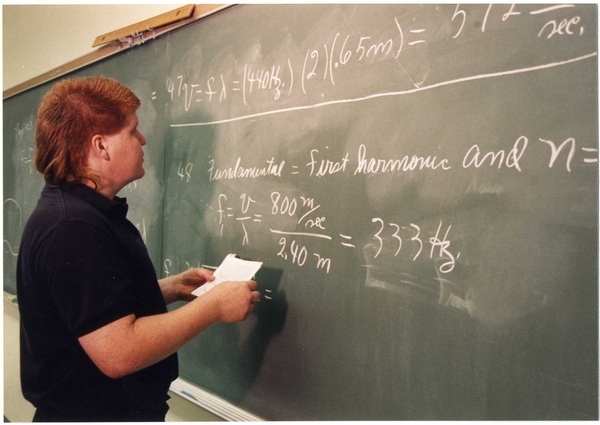 = 47 v = f λ = (440 Hz.) (2)(.65m) = 572 m/sec.
48 Fundamental = first harmonic and n =
f₁ = v/λ = 800 m/sec / 2.40 m = 333 Hz.
=